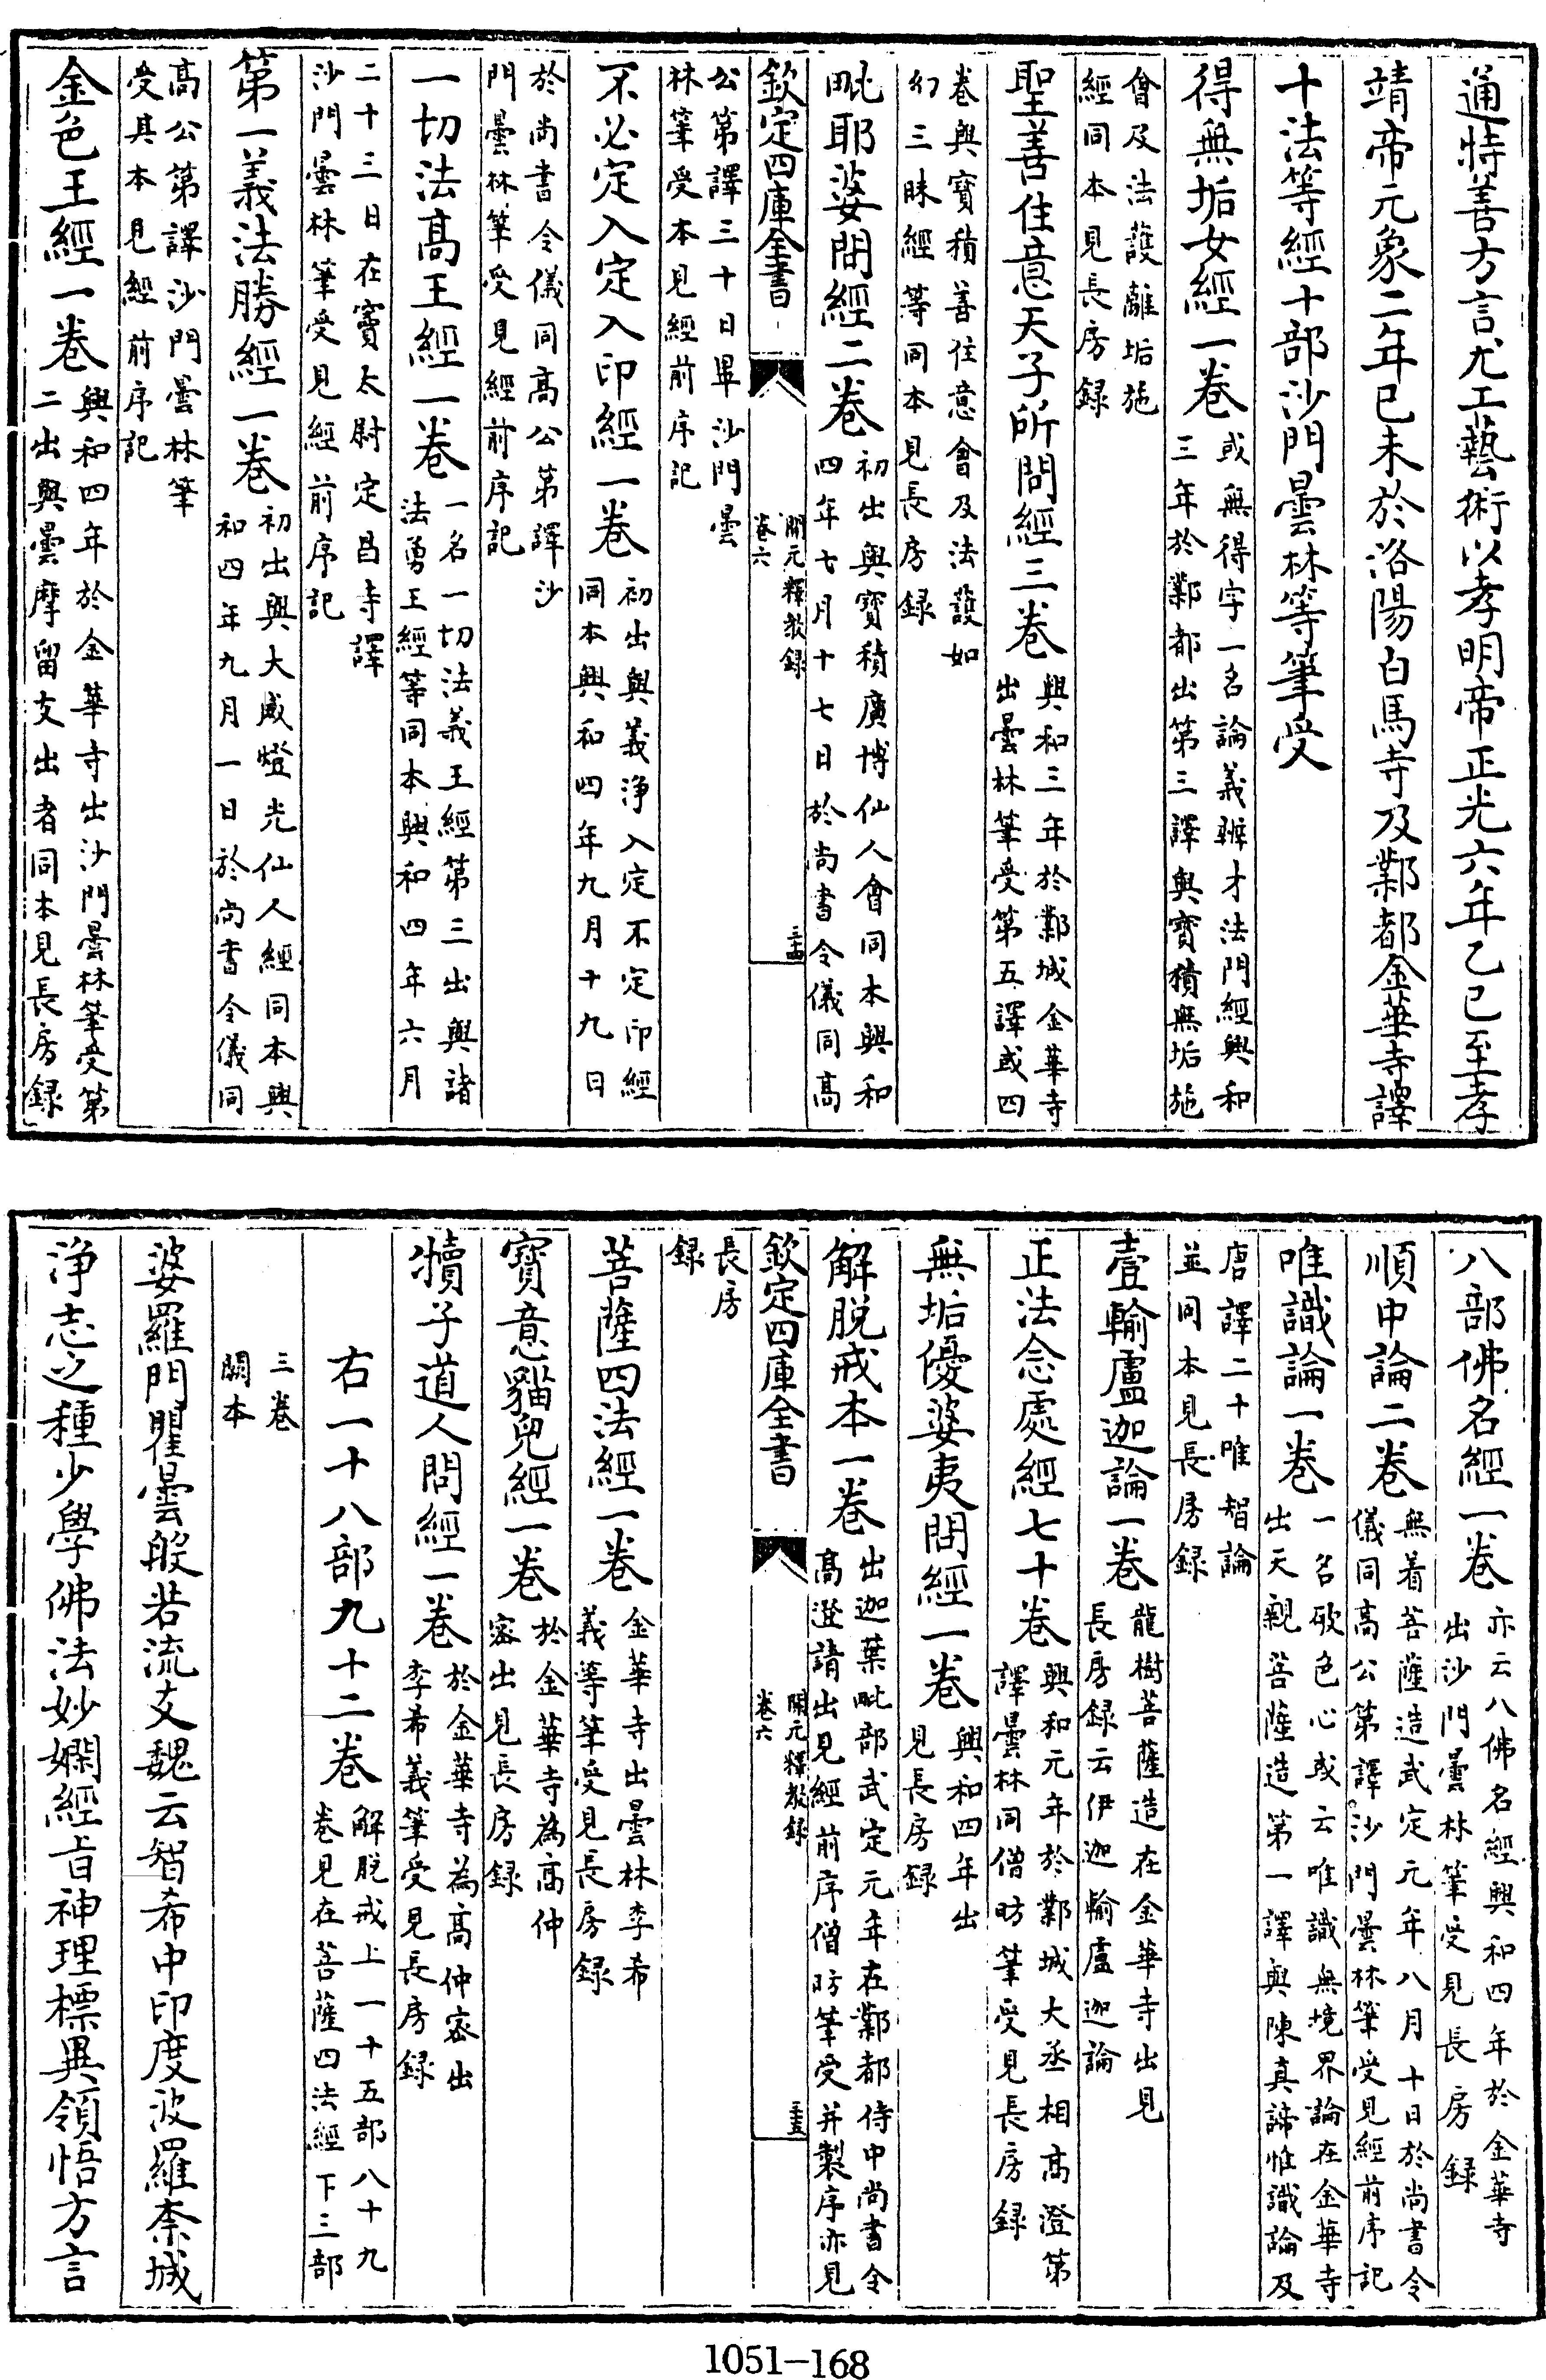 通特善方言尤工藝術以孝明帝正光六年乙巳至孝
靖帝元象二年已未於洛陽白馬寺及鄴都金華寺譯
十法等經十部沙門曇林等筆受
得無垢女經一卷
或無得字一名論義辨才法門經興和
三年於鄴都出第三譯與寶積無垢施
會及法護離垢施
經同本見長房録
聖善住意天子所問經三卷
興和三年於鄴城金華寺
出曇林筆受第五譯或四
卷與寳積善住意會及法護如
幻三昧經等同本見長房録
毗耶娑問經二卷
初出與寶積廣博仙人會同本興和
四年七月十七日於尚書令儀同高
欽定四庫全書
開元釋教録
卷六
三四
公第譯三十日畢沙門曇
林筆受本見經前序記
不必定入定入印經一卷
初出與義淨入定不定印經
同本興和四年九月十九日
於尚書令儀同高公第譯沙
門曇林筆受見經前序記
一切法高王經一卷
一名一切法義王經第三出與諸
法勇王經等同本興和四年六月
二十三日在竇太尉定昌寺譯
沙門曇林筆受見經前序記
第一義法勝經一卷
初出與大威燈光仙人經同本興
和四年九月一日於尚書令儀同
高公第譯沙門曇林筆
受其本見經前序記
金色王經一卷
興和四年於金華寺出沙門曇林筆受第
二出與曇摩留支出者同本見長房録
八部佛名經一卷
亦云八佛名經興和四年於金華寺
出沙門曇林筆受見長房録
順中論二卷
無着菩薩造武定元年八月十日於尚書令
儀同高公第譯沙門曇林筆受見經前序記
唯識論一卷
一名破色心或云唯識無境界論在金華寺
出天親菩薩造第一譯與陳真諦惟識論及
唐譯二十唯智論
並同本見長房録
壹輸盧迦論一卷
龍樹菩薩造在金華寺出見
長房録云伊迦輸盧迦論
正法念處經七十卷
興和元年於鄴城大丞相高澄第
譯曇林同僧昉筆受見長房録
無垢優婆夷問經一卷
興和四年出
見長房録
解脱戒本一卷
出迦葉毗部武定元年在鄴都侍中尚書令
高澄請出見經前序僧昉筆受并製序亦見
欽定四庫全書
開元釋教録
卷六
三五
長房
録
菩薩四法經一卷
金華寺出曇林李希
義等筆受見長房録
寶意貓兒經一卷
於金華寺為高仲
密出見長房録
犢子道人問經一卷
於金華寺為高仲密出
李希義筆受見長房録
右一十八部九十二卷
解脱戒上一十五部八十九
卷見在菩薩四法經下三部
三卷
闕本
婆羅門瞿曇般若流支魏云智希中印度波羅柰城
淨志之種少學佛法妙嫻經旨神理標異領悟方言
1051-168